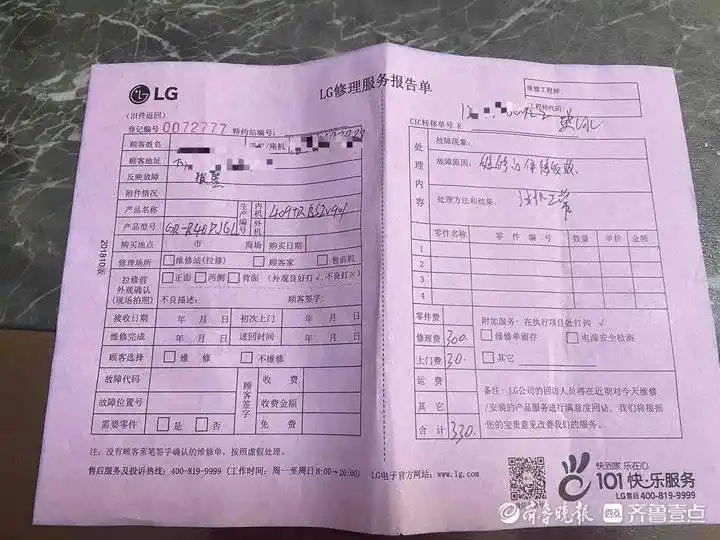 LG
LG修理服务报告单
(旧件返回)
登记编号 0072777 特约站编号:
顾客姓名
顾客地址
反映故障 报警
附件情况
产品名称
产品型号
生产编号
内机
外机
购买地点 市 商场 购买日期
修理场所 维修站(拉修) 顾客家 售前机
拉修前
外观确认
(现场拍照)
正面 两侧 背面 (外观良好打√,不良打×)
不良描述: 顾客签字:
接收日期 年 月 日 初次上门 年 月 日
维修完成 年 月 日 送回时间 年 月 日
顾客选择 维 修 不维修
故障代码
故障位置号
需要零件 是 否
顾客签字
收 费
收费金额
免 费
注: 没有顾客亲笔签字确认的维修单,按照虚假处理。
售后服务及投诉热线: 400-819-9999 (工作时间: 周一至周日8:00~20:00)
201810版
维修工程师:
工程师代码:
CIC转移单号 R
处理内容
故障现象:
故障原因:
处理方法和结果:
零件名称 零 件 编 号 数量 单价 金额
1
2
3
4
零件费
修理费 300.
上门费 30.
运 费
其 它
合 计 330.
附加服务: 在执行项目处打钩 √
维修单留存 电源安全检测
其它
备注: LG公司的回访人员将在近期对今天维修
/安装的产品服务进行满意度回访,我们将根据
您的宝贵意见改善我们的服务。
LG电子官方网站: www.lg.com
快到家 乐在心
101快·乐服务
LG售后400-819-9999
齐鲁晚报 齐鲁壹点